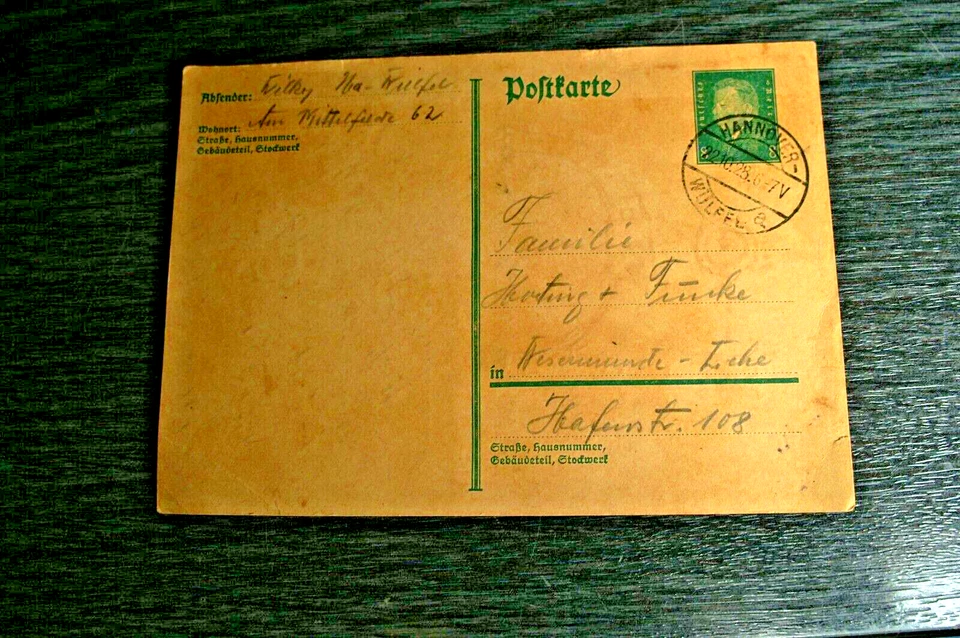 Absender: Ha-Wülfel
Am Mittelfelde 62
Wohnort:
Straße, Hausnummer,
Gebäudeteil, Stockwerk
Postkarte
HANNOVER-
WÜLFEL a
Familie
+ Funcke
in Wesermünde - Lehe
Hafenstr. 108
Straße, Hausnummer,
Gebäudeteil, Stockwerk